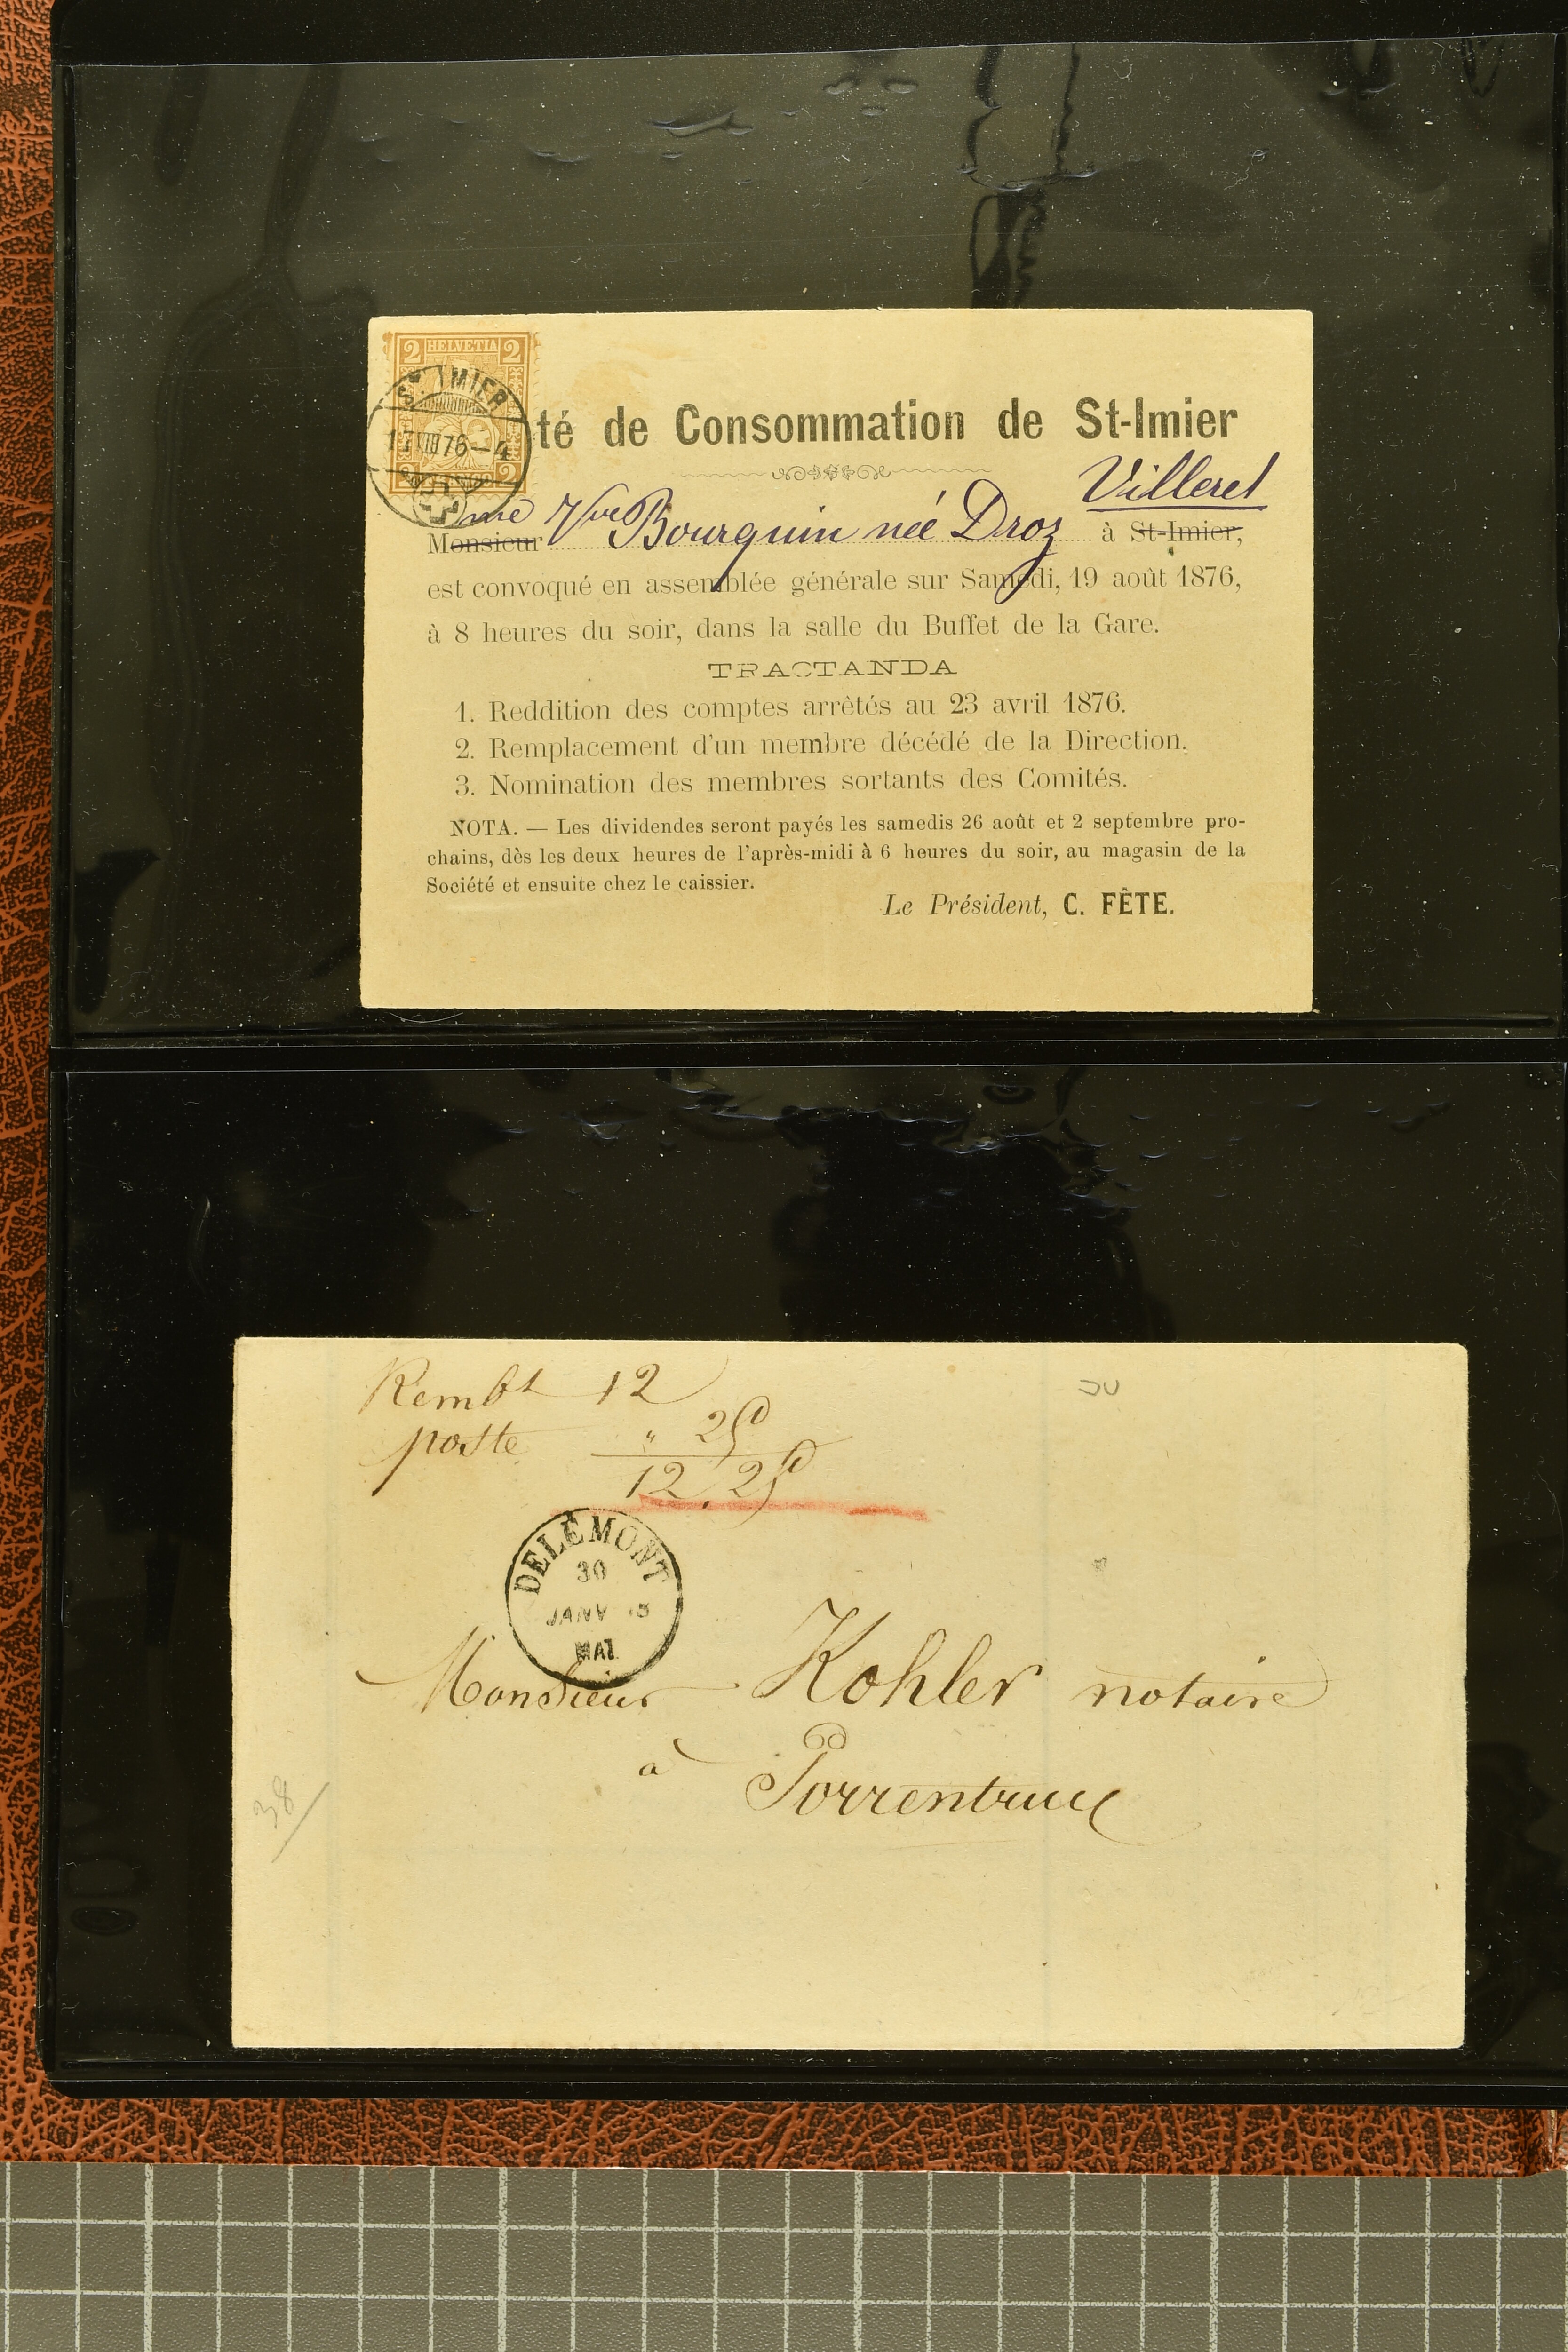 2 HELVETIA 2
ST. IMIER
17 VIII 76–4
2
té de Consommation de St-Imier
Villeret
me Vve Bourquin née Droz
Monsieur à St-Imier,
est convoqué en assemblée générale sur Samedi, 19 août 1876,
à 8 heures du soir, dans la salle du Buffet de la Gare.
TRACTANDA
1. Reddition des comptes arrêtés au 23 avril 1876.
2. Remplacement d'un membre décédé de la Direction.
3. Nomination des membres sortants des Comités.
NOTA. — Les dividendes seront payés les samedis 26 août et 2 septembre pro-
chains, dès les deux heures de l'après-midi à 6 heures du soir, au magasin de la
Société et ensuite chez le caissier.
Le Président, C. FÊTE.
Rembt 12
poste " 25
12, 25
DELÉMONT
30
JANV
MAT
Monsieur Kohler notaire
à Porrentruy
38